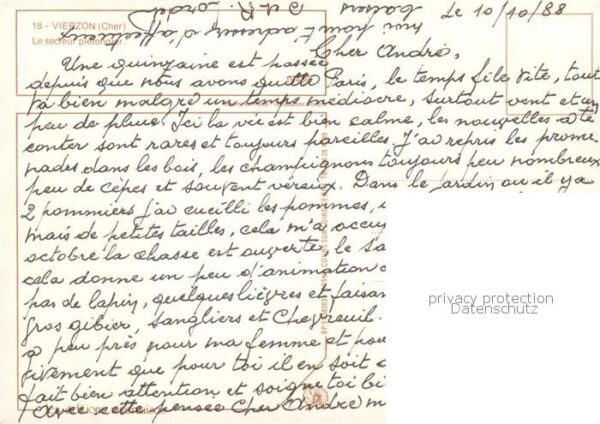 18 - VIERZON (Cher)
Le secteur piétonnier
Le 10/10/88
Cher André,
Une quinzaine est passée
depuis que nous avons quitté Paris, le temps file vite, tout
va bien malgré un temps médiocre, surtout vent et un
peu de pluie. Ici la vie est bien calme, les nouvelles a te
conter sont rares et toujours pareilles. J'ai repris les prome-
nades dans les bois, les champignons toujours peu nombreux
peu de cèpes et souvent véreux. Dans le jardin ou il y a
2 pommiers j'ai cueilli les pommes,
mais de petites tailles, cela m'a occu
octobre la chasse est ouverte, le sa
cela donne un peu d'animation
pas de lapin, quelques lièvres et faisan
gros gibier, sangliers et chevreuil.
a peu près pour ma femme et pou
vivement que pour toi il en soit
fait bien attention et soigne toi bi
Avec cette pensée Cher André m
qui vont t'adresser d'affectueux
baisers
privacy protection
Datenschutz